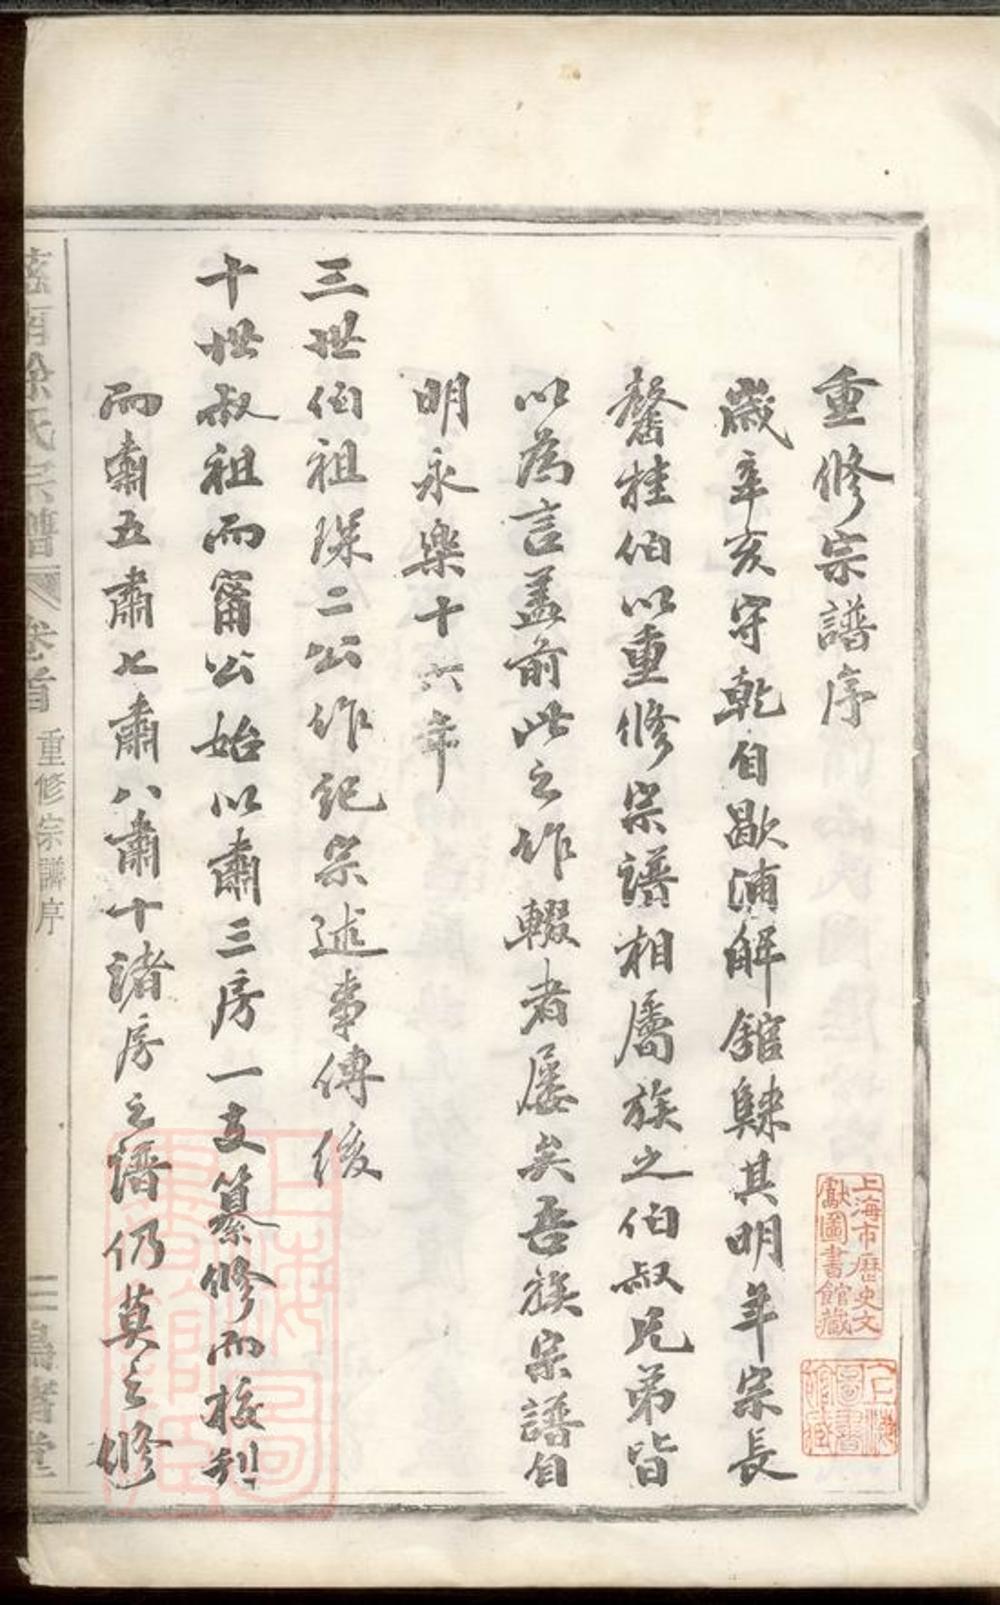 重修宗譜序
歲辛亥守乾自歇浦解館歸其明年宗長
馨桂伯以重修宗譜相屬族之伯叔兄弟皆
以為言蓋前此之作輟者屢矣吾族宗譜自
明永樂十六年
三世伯祖琛二公作記宗述事傳後
十世叔祖而甯公始以肅三房一支纂修而授刊
而肅五肅七肅八肅十諸房之譜仍莫之修
南徐氏宗譜 卷首 重修宗譜序 二 堂
上海市歷史文獻圖書館藏
上海圖書館藏